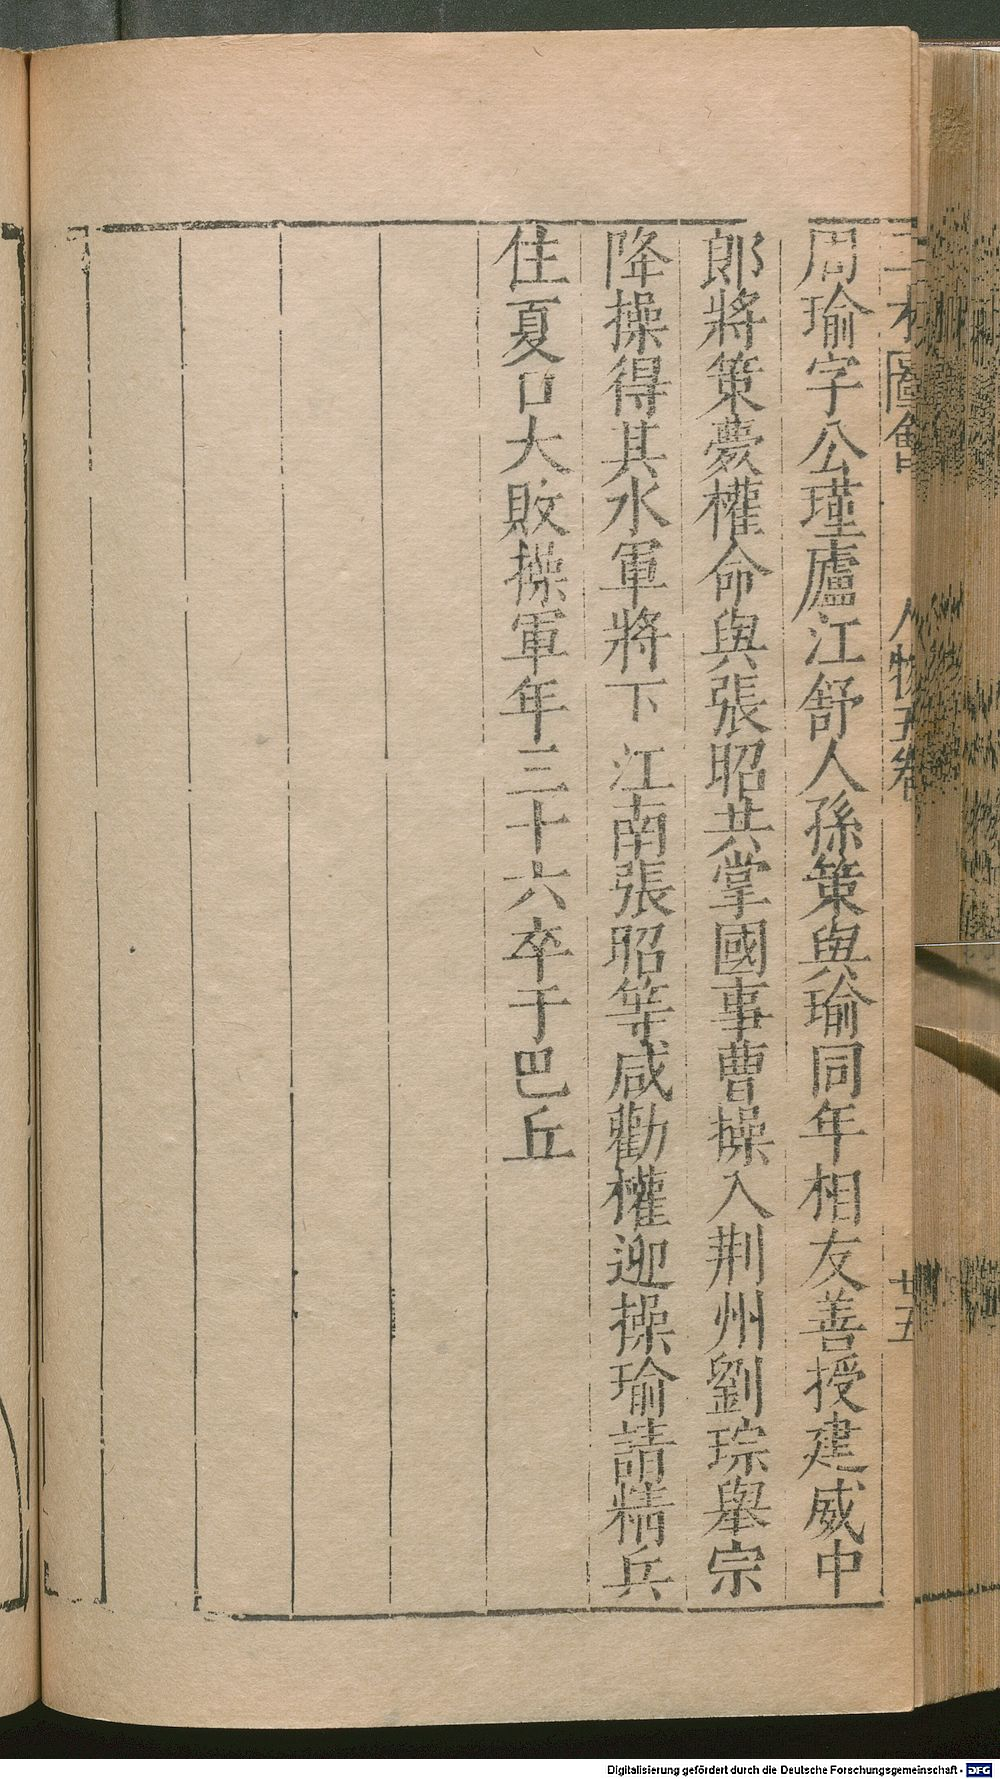 三才圖會 人物五卷 廿五
周瑜字公瑾廬江舒人孫策與瑜同年相友善授建威中
郎將策薨權命與張昭共掌國事曹操入荆州劉琮舉宗
降操得其水軍將下江南張昭等咸勸權迎操瑜請精兵
住夏口大敗操軍年三十六卒于巴丘
Digitalisierung gefördert durch die Deutsche Forschungsgemeinschaft - DFG